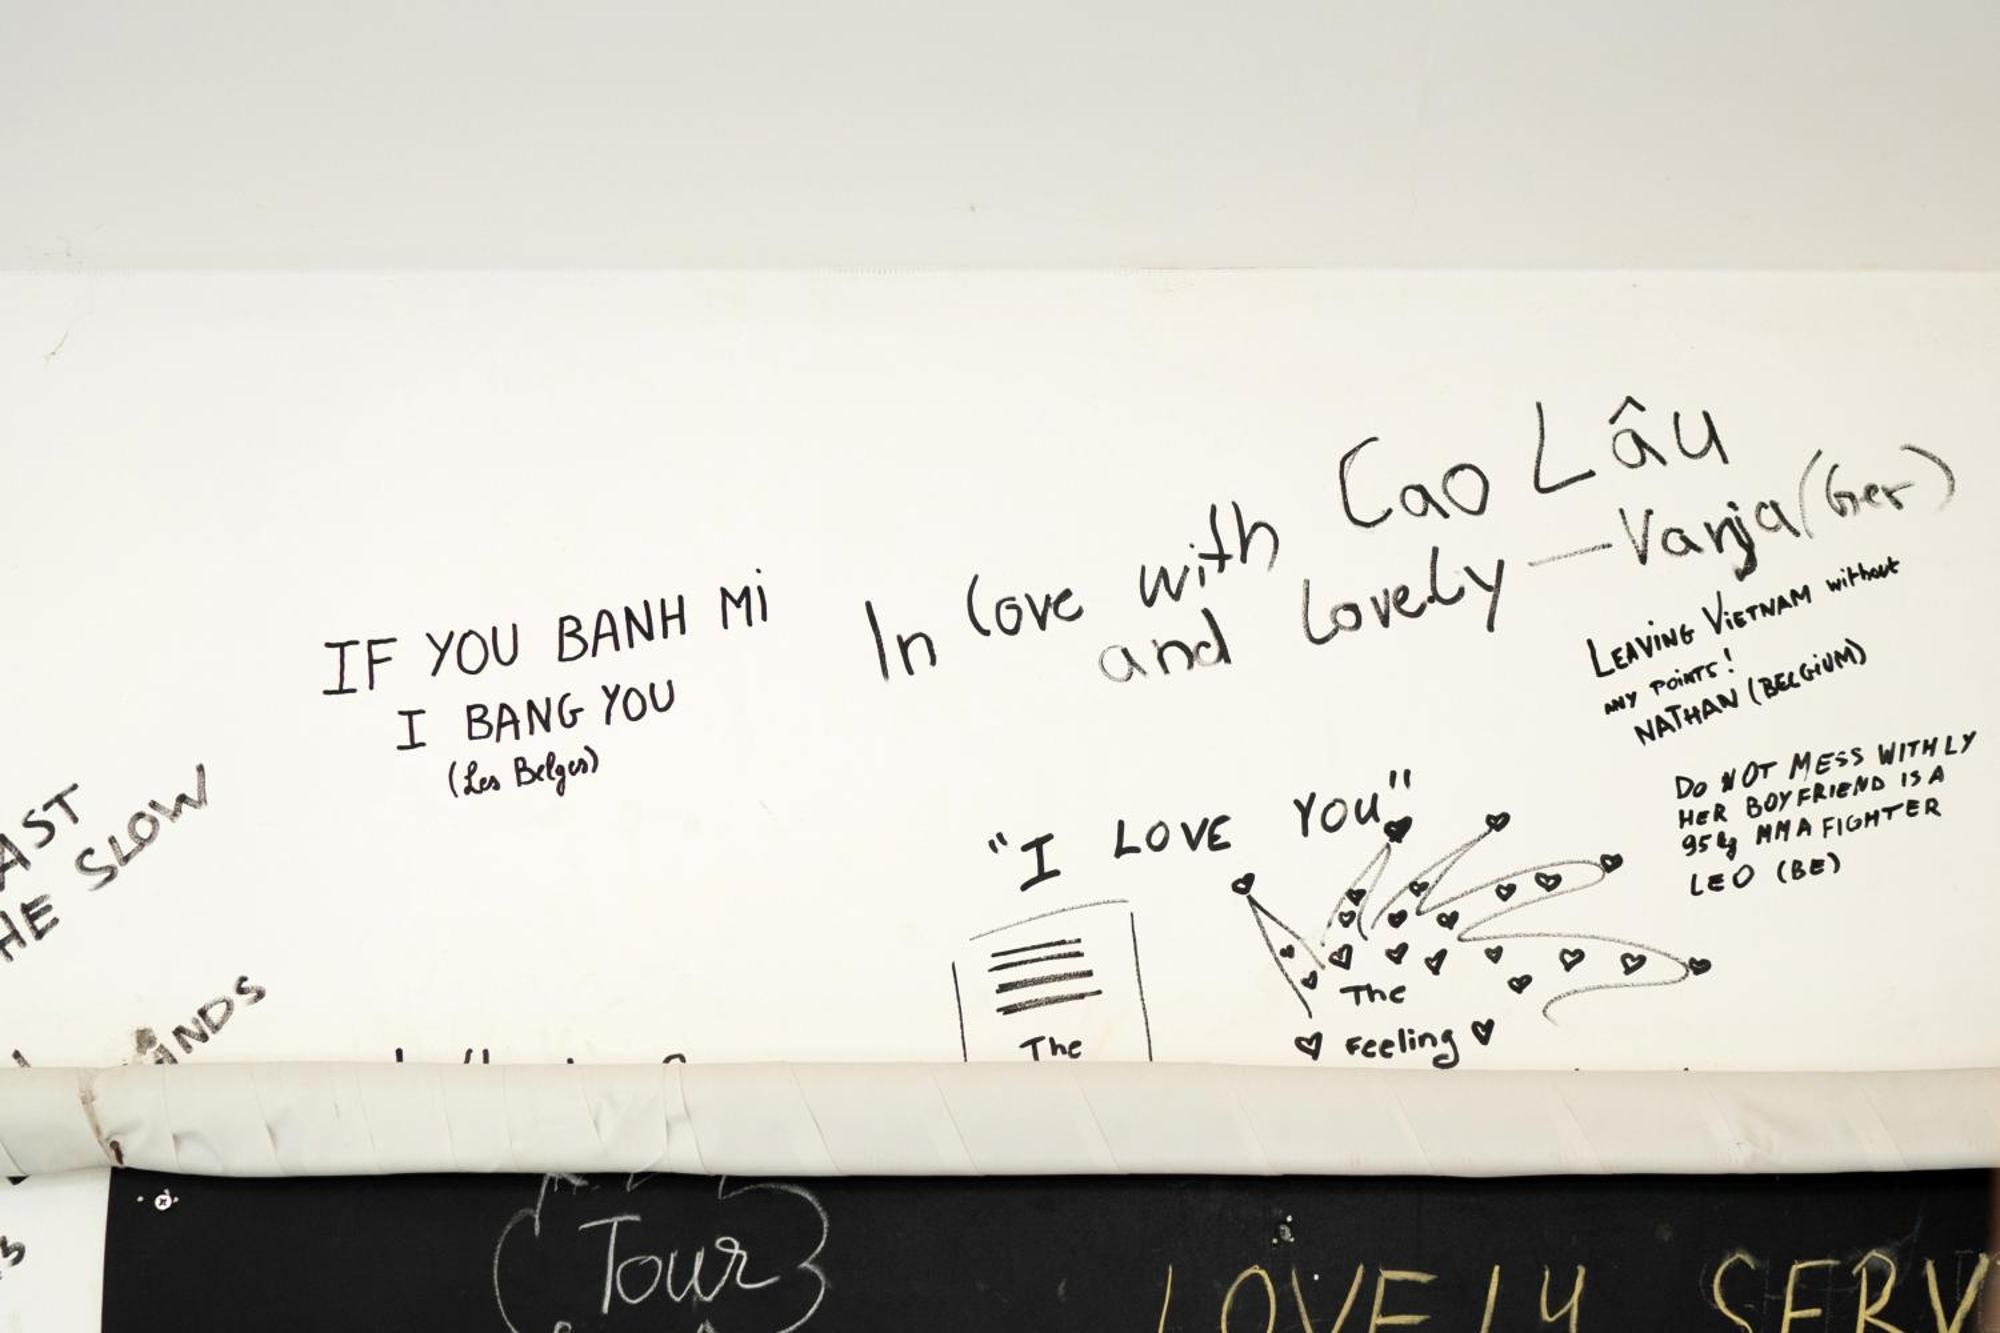 IF YOU BANH Mi
I BANG YOU
(Les Belges)
In love with Cao Lâu
and lovely — Vanja (Ger)
LEAVING VIETNAM without
ANY POINTS!
NATHAN (BELGIUM)
DO NOT MESS WITH LY
HER BOYFRIEND IS A
95kg MMA FIGHTER
LEO (BE)
"I LOVE YOU"
The
The
Feeling
AST
HE SLOW
ANDS
Tour
LOVELY SERV